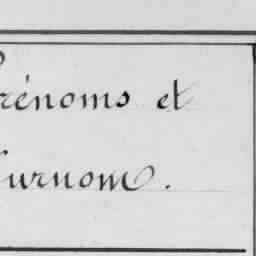 Prénoms et
Surnom.